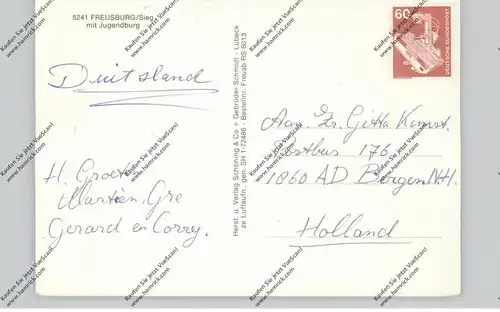 5241 FREUSBURG/Sieg
mit Jugendburg
Duitsland
H. Groeten
Martien, Gre
Gerard en Corry.
Herst. u. Verlag Schöning & Co + Gebrüder Schmidt · Lübeck
ze Luftaufn., gen. SH 1-72486 - Bestellnr. Freusb RS 8013
60
DEUTSCHE BUNDESPOST
Aan Fr. Gitta
Postbus 176
1860 AD Bergen N.H.
Holland
Kaufen Sie jetzt VueScan!
www.hamrick.com